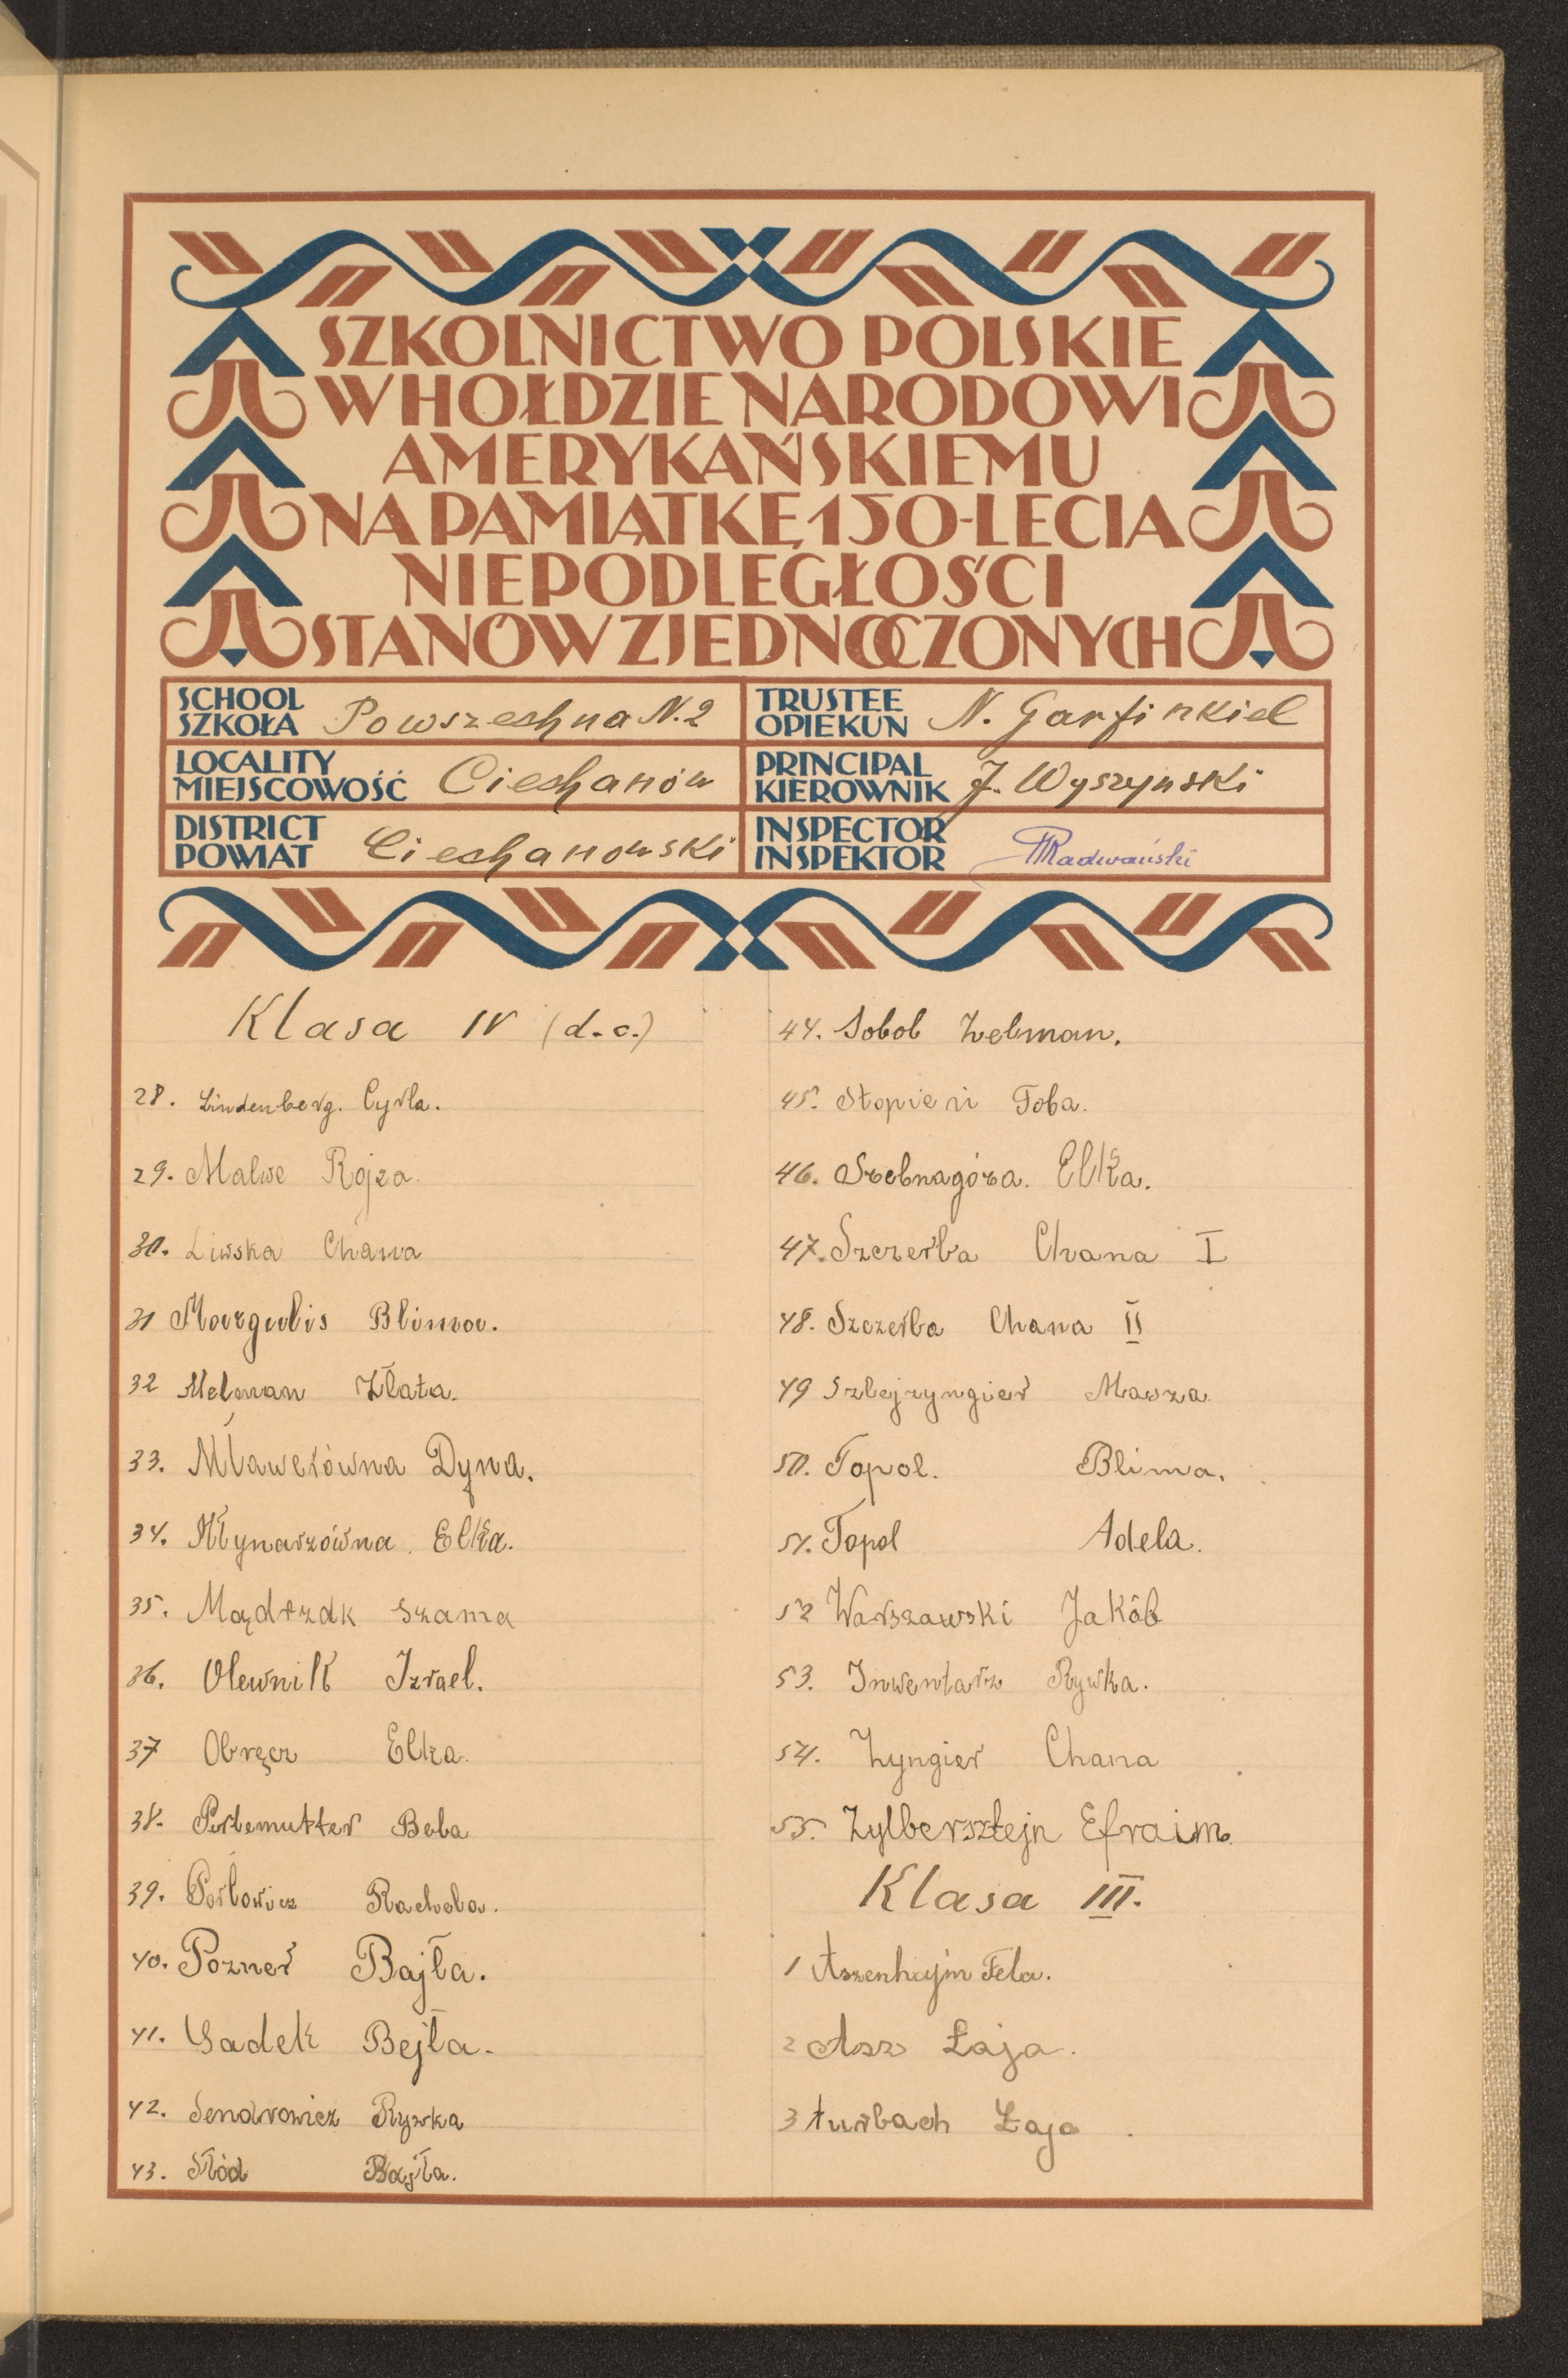 SZKOLNICTWO POLSKIE
W HOŁDZIE NARODOWI
AMERYKAŃSKIEMU
NA PAMIĄTKĘ 150-LECIA
NIEPODLEGŁOŚCI
STANÓW ZJEDNOCZONYCH
SCHOOL
SZKOŁA Powszechna N. 2
TRUSTEE
OPIEKUN N. Garfinkiel
LOCALITY
MIEJSCOWOŚĆ Ciechanów
PRINCIPAL
KIEROWNIK J. Wyszyński
DISTRICT
POWIAT Ciechanowski
INSPECTOR
INSPEKTOR Radwański
Klasa IV (d.c.)
28. Lindenberg. Cyrla.
29. Malwe Rojza.
30. Liwska Chawa
31 Margulis Blima.
32 Melman Złata.
33. Mławerówna Dyna.
34. Młynarzówna. Elka.
35. Mądrzak Szama
36. Olewnik Izrael.
37 Obręcz Elka.
38. Perlemutter Beba
39. Perłowicz Rachela.
40. Pozner Bajła.
41. Sadek Bejła.
42. Sendrowicz Rywka
43. Słód Bajła.
44. Sobol Zelman.
45. Stopień Toba.
46. Srebnagóra. Elka.
47. Szczerba Chana I
48. Szczerba Chana II
49 Szlejzyngier Masza.
50. Topol. Blima.
51. Topol Adela.
52 Warszawski Jakób
53. Inwentarz Rywka.
54. Zyngier Chana
55. Zylbersztejn Efraim.
Klasa III.
1 Aszenhajm Fela.
2 Asz Łaja.
3 Aurbach Łaja.